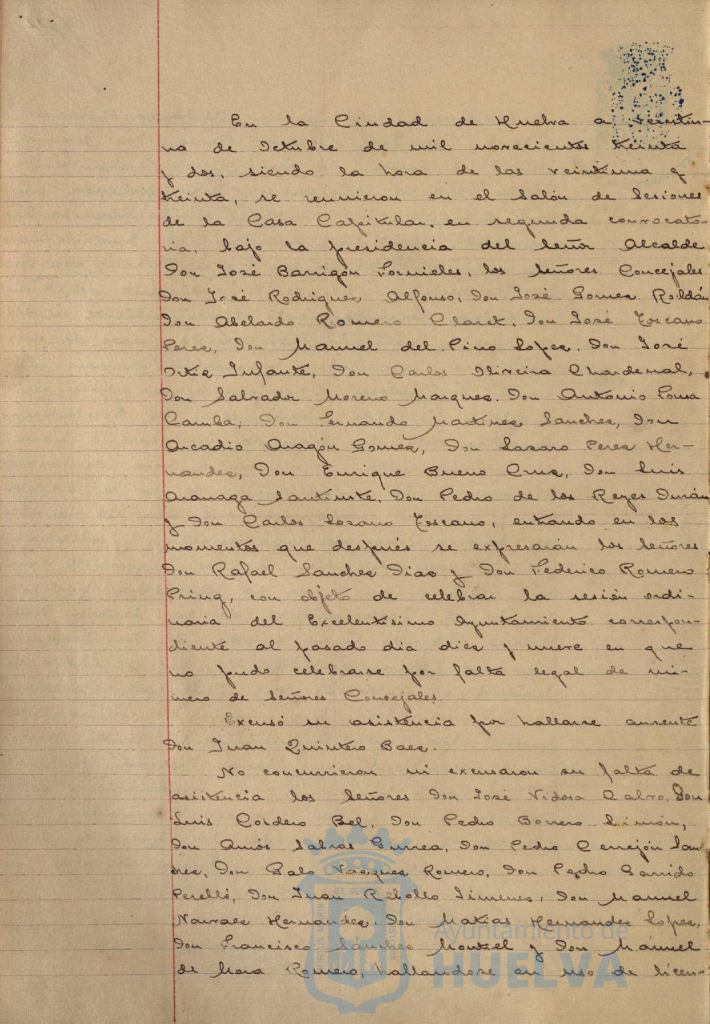 En la Ciudad de Huelva a veintiu-
no de Octubre de mil novecientos treinta
y dos, siendo la hora de las veintiuna y
treinta, se reunieron en el Salón de Sesiones
de la Casa Capitular, en segunda convocato-
ria, bajo la presidencia del Señor Alcalde
Don José Barrigón Fornieles, los Señores Concejales
Don José Rodriguez Alfonso, Don José Gomez Roldán
Don Abelardo Romero Claret, Don José Toscano
Perez, Don Manuel del Pino Lopez, Don José
Ortiz Infante, Don Carlos Oliveira Chardenal,
Don Salvador Moreno Marquez, Don Antonio Pousa
Camba, Don Fernando Martinez Sanchez, Don
Arcadio Aragón Gomez, Don Lazaro Perez Her-
nandez, Don Enrique Bueno Cruz, Don Luis
Aranaga Don Pedro de los Reyes Durán
y Don Carlos Lozano Toscano, entrando en los
momentos que después se expresarán los Señores
Don Rafael Sanchez Diaz y Don Federico Romero
con objeto de celebrar la sesión ordi-
naria del Excelentísimo Ayuntamiento correspon-
diente al pasado dia diez y nueve en que
no pudo celebrarse por falta legal de nú-
mero de Señores Concejales.
Excusó su asistencia por hallarse ausente
Don Juan Quintero Baez.
No concurrieron ni excusaron su falta de
asistencia los Señores Don José Vidosa Calvo, Don
Luis Cordero Bel, Don Pedro Borrero Limón,
Don Amós Sabras Gurrea, Don Pedro Cerrejón San-
chez, Don Galo Vazquez Romero, Don Pedro Garrido
Perelló, Don Juan Rebollo Jimenez, Don Manuel
Narvaez Hernandez, Don Matias Hernandez Lopez,
Don Francisco Sanchez y Don Manuel
de Mora Romero, hallandose en uso de licen-
Ayuntamiento de
HUELVA